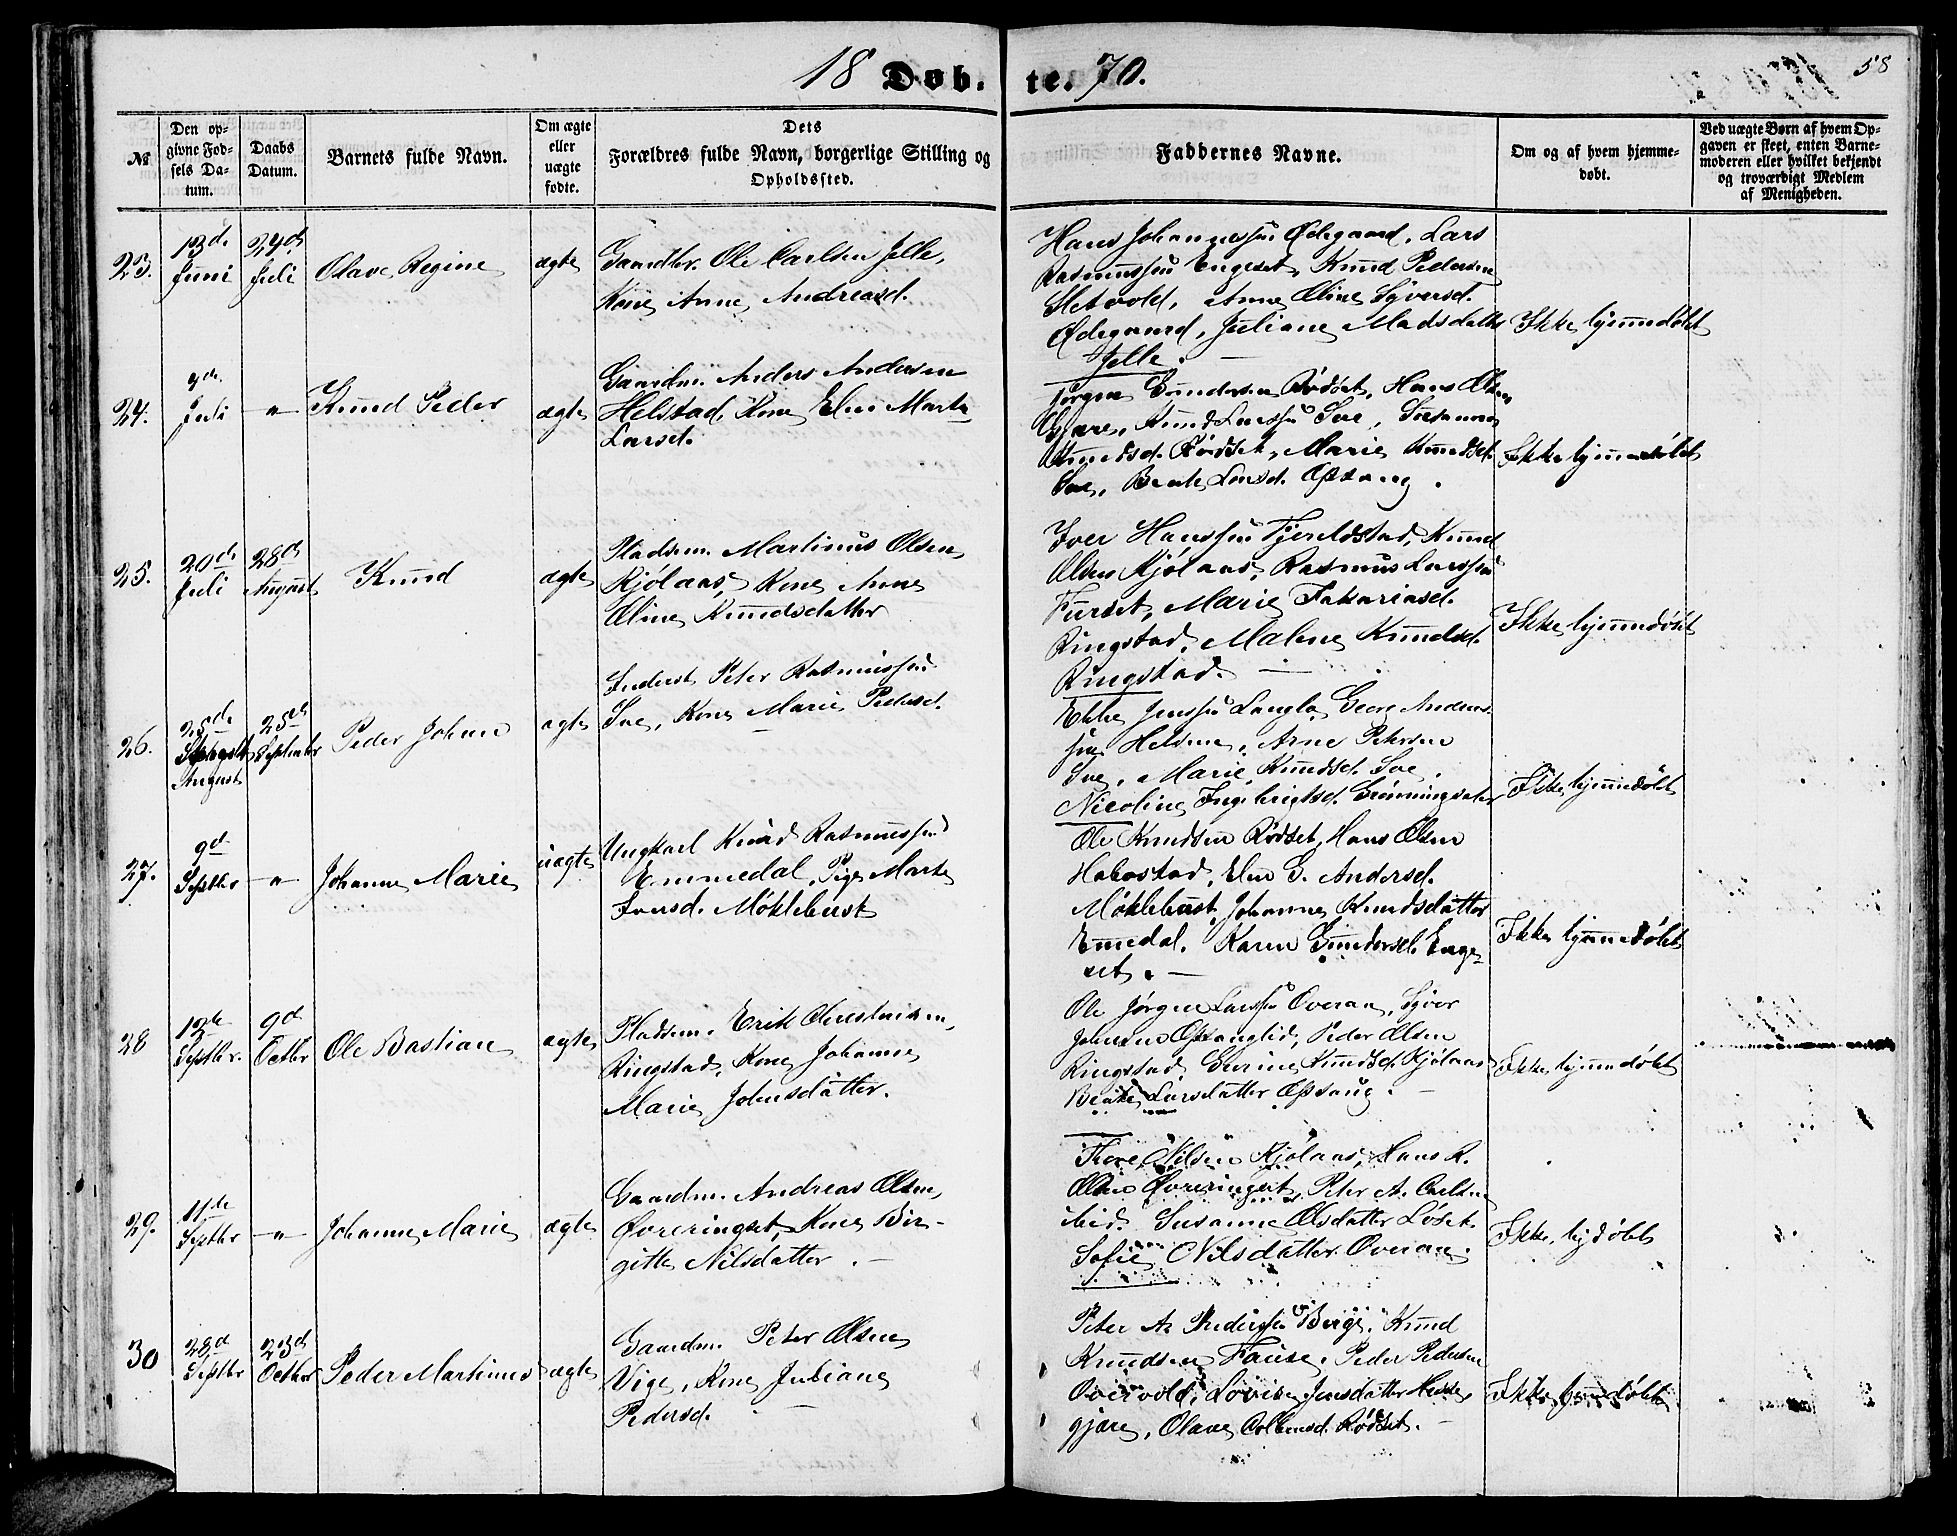 18 Døb- te. 70.
58
№
Den op-
givne Fød-
sels Da-
tum.
Daabs
Datum.
Barnets fulde Navn.
Om ægte
eller
uægte
fødte.
Dets
Forældres fulde Navn, borgerlige Stilling og
Opholdssted.
Faddernes Navne.
Om og af hvem hjemme-
døbt.
Ved uægte Børn af hvem Op-
gaven er skeet, enten Barne-
moderen eller hvilket bekjendt
og troværdigt Medlem
af Menigheden.
23.
13d.
Juni
24d
Juli
Olave Regine
ægte
Gaardbr. Ole Carlsen Jelle,
Kone Anne Andreasd.
Hans Johannessen Ødegaard, Lars
Rasmussen Engeset, Knud Pedersen
Sletvold, Anne Oline Syversd.
Ødegaard, Juliane Madsdatter
Jelle.
Ikke hjemmedøbt
24.
9de
Juli
-"-
Knud Peder
ægte
Gaardm. Anders Andersen
Helstad, Kone Elen Marta
Larsd.
Jørgen Gundersen Rødset, Hans Olsen
Gjære, Knud Larssen Sve, Susanne
Knudsd. Rødset, Marie Knudsd.
Sve, Beate Larsd. Opsang.
Ikke hjemmedøbt
25.
20de
Juli
28d
August
Knud
ægte
Pladsm. Martinus Olsen
Kjølaas, Kone Anne
Oline Knudsdatter
Iver Hanssen Fjeldstad, Knud
Olsen Kjølaas, Rasmus Larssen
Furset, Marie Sakariasd.
Ringstad, Malene Knudsd.
Ringstad.
Ikke hjemmedøbt
26.
25de
August
25de
September
Peder Johan
ægte
Inderst Peter Rasmussen
Sve, Kone Marie Pedersd.
Ebbe Jenssen Langlo, Georg Anders-
sen Helsem, Arne Petersen
Sve, Marie Knudsd. Sve,
Nicoline Ingebrigtsd. Grønningsæter
Ikke hjemmedøbt
27.
9d
Septbr
-"-
Johanne Marie
uægte
Ungkarl Knud Rasmussen
Emmedal, Pige Marte
Iversd. Møklebust
Ole Knudsen Rødset, Hans Olsen
Habostad, Elen G. Andersd.
Møklebust, Johanne Knudsdatter
Emedal. Karen Gundersd. Enge-
set.
Ikke hjemmedøbt
28
12te
Septbr.
9d
Octbr
Ole Bastian
ægte
Pladsm. Erik Christensen,
Ringstad, Kone Johanne
Marie Johnsdatter.
Ole Jørgen Larssen Overaa, Syver
Johnsen Opsanglid, Peder Olsen
Ringstad, Gurine Knudsd. Kjølaas
Beate Larsdatter Opsaug.
Ikke hjemmedøbt
29.
11te
Septbr
-"-
Johanne Marie
ægte
Gaardm. Andreas Olsen,
Øvreringset, Kone Bir-
gitte Nilsdatter.
Thore Nilsen Kjølaas, Hans R.
Olsen Øvreringset, Peter A. Carlsen
ibid. Susanne Olsdatter Løset
Sofie Nilsdatter Overaa.
Ikke hjdøbt
30
28d
Septbr
23d
Octbr
Peder Martinus
ægte
Gaardm. Peter Olsen
Vige, Kone Juliane
Pedersd.
Peter A. Pederssen Berge, Knud
Knudsen Fause, Peder Pedersen
Overvold, Lovise Jensdatter Hesse-
gjære, Olave Colbensd. Rødset.
Ikke hjemdøbt